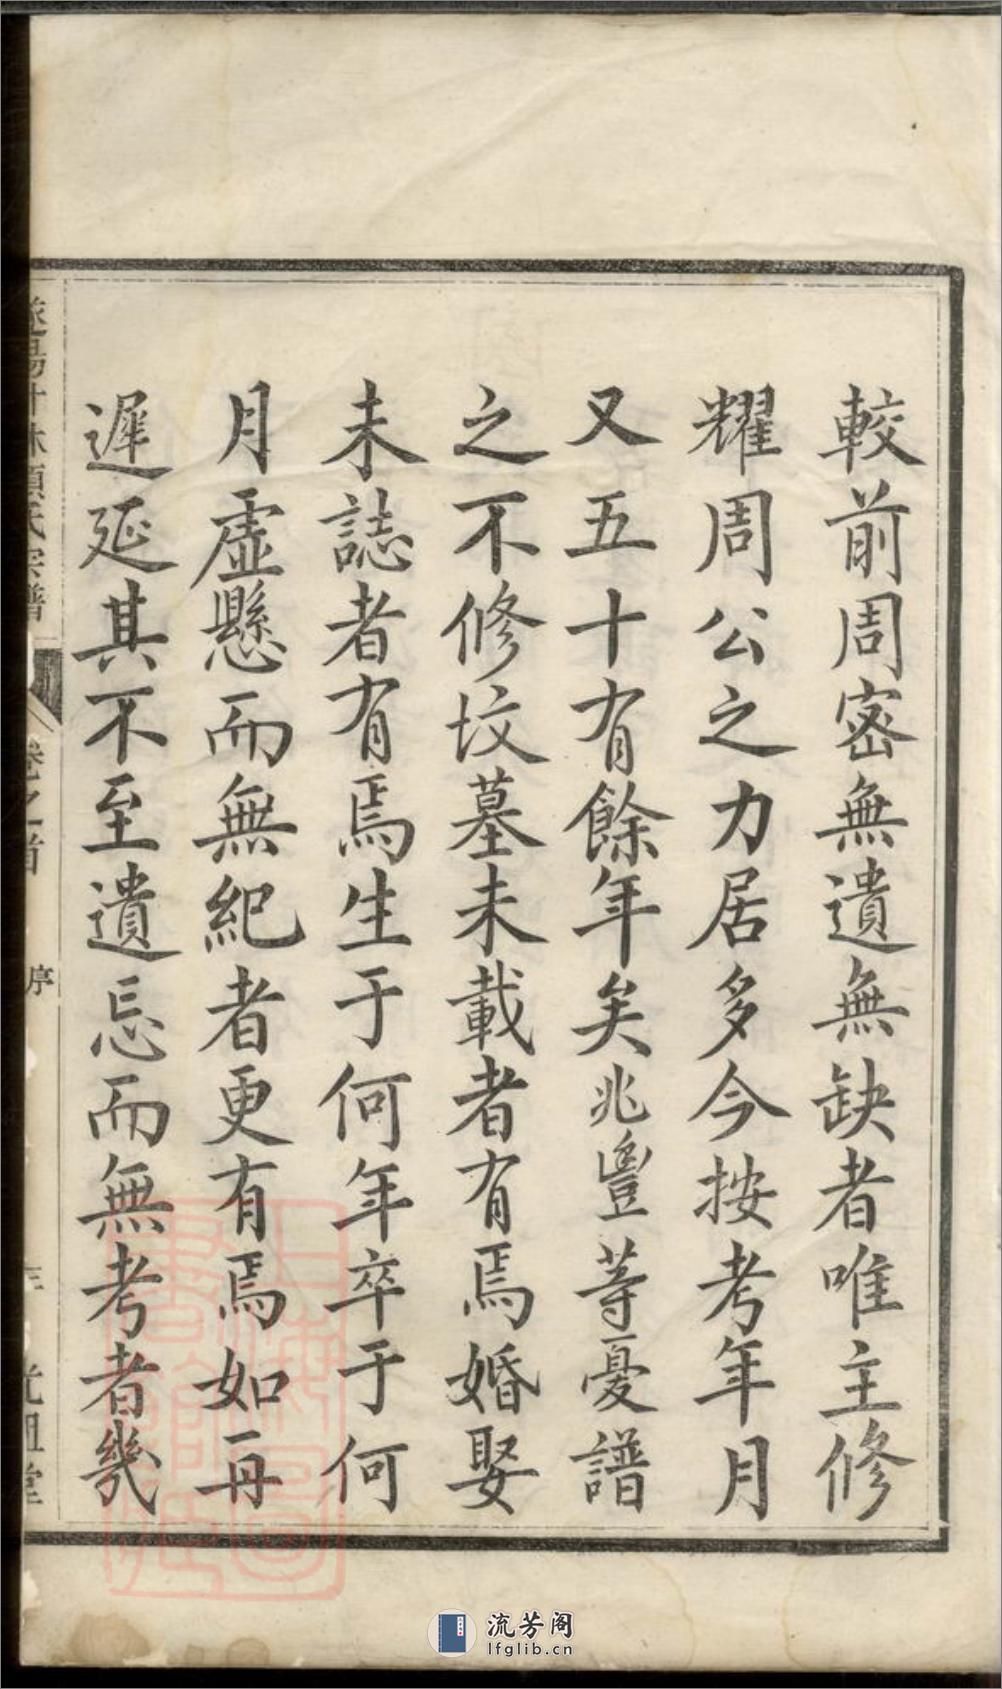 較前周密無遺無缺者唯主修
耀周公之力居多今按考年月
又五十有餘年矣兆豐等憂譜
之不修坟墓未載者有焉婚娶
未誌者有焉生于何年卒于何
月虛懸而無紀者更有焉如再
遲延其不至遺忘而無考者幾
氏宗譜 卷之首 序 光祖堂
上海圖書館藏
流芳阁
lfglib.cn